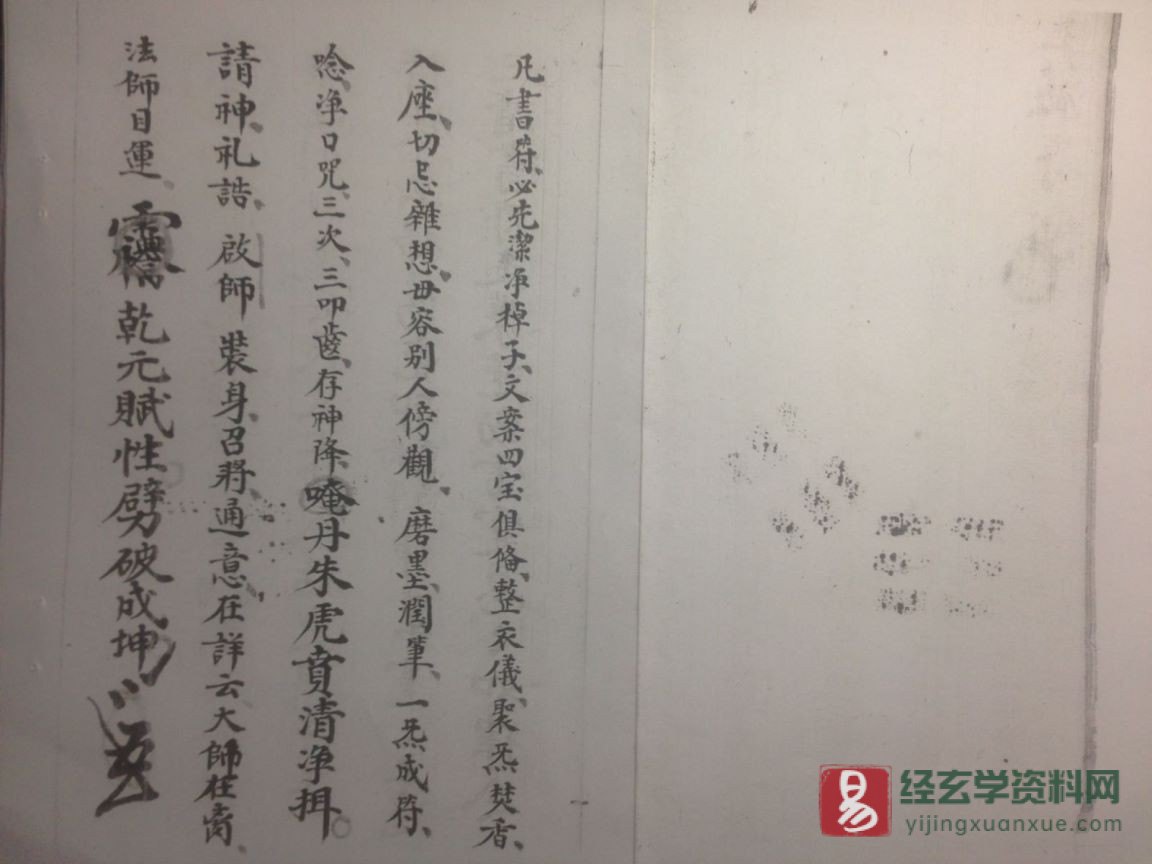 凡書符、必先潔净棹子、文案四宝俱俻、整衣儀、聚炁焚香、
入座、切忌雜想、毋容别人傍觀、磨墨潤筆、一炁成符、
唸净口咒、三次、三叩齒、存神降、唵丹朱虎賁清净揖。
請神、礼誥、啟師 裝身、召將、通意、在詳云大師在䆫、
法師目運、乾元賦性劈破成坤
易
经玄学资料网
yijingxuanxue.com